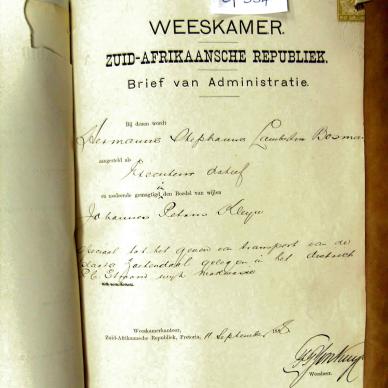 WEESKAMER.
ZUID-AFRIKAANSCHE REPUBLIEK.
Brief van Administratie.
Bij dezen wordt
Hermanus Stephanus Lambertus Bosman
aangesteld als
Executeur datief
in
en als zoodanig gemagtigd den Boedel van wijlen
Johannes Petrus Kleyn
speciaal tot het geven van transport van de
plaats gelegen in het district
wijk
Weeskamerkantoor,
Zuid-Afrikaansche Republiek, Pretoria, 11 September
Weesheer.